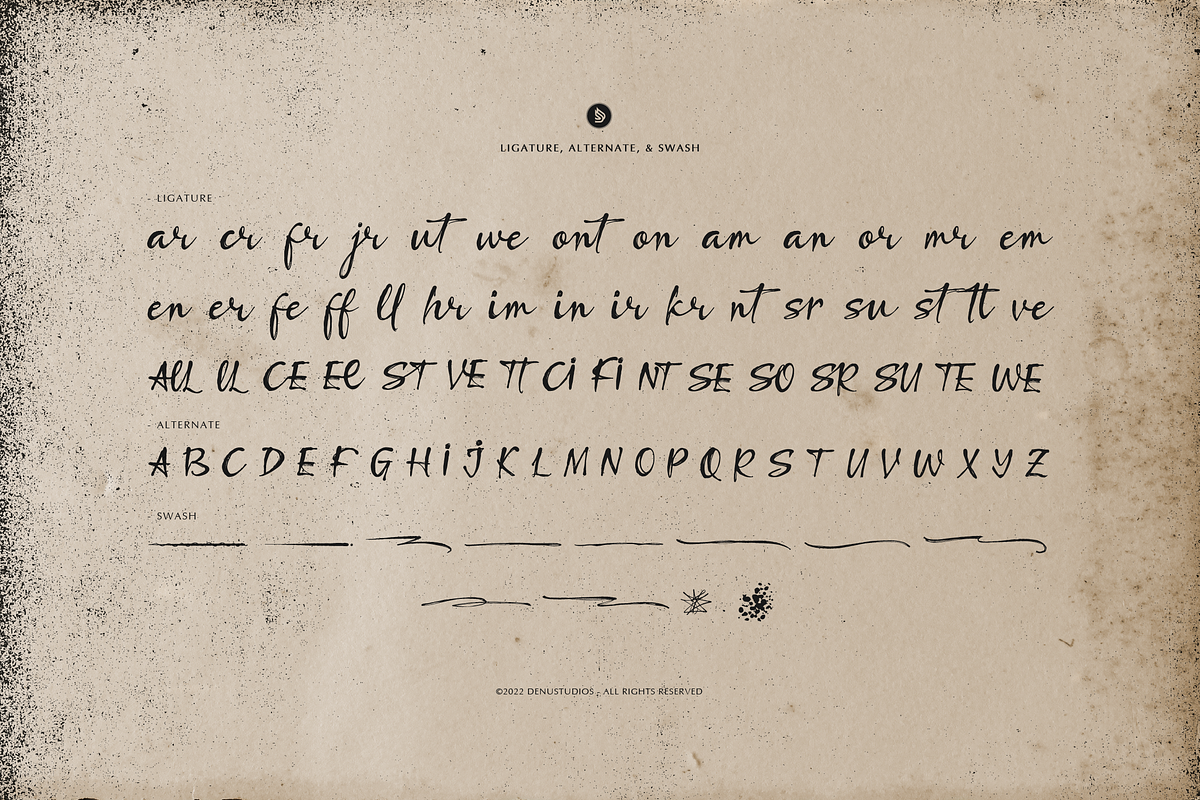 LIGATURE, ALTERNATE, & SWASH
LIGATURE
ar cr fr jr ut we ont on am an or mr em
en er fe ff ll hr im in ir kr nt sr su st tt ve
ALL LL CE EE ST VE TT Ci Fi NT SE SO SR SU TE WE
ALTERNATE
A B C D E F G H i J K L M N O P Q R S T U V W X Y Z
SWASH
©2022 DENUSTUDIOS - ALL RIGHTS RESERVED